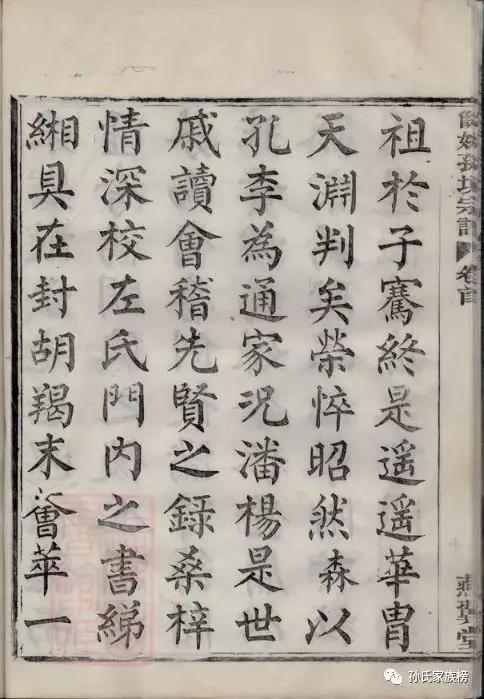 餘姚孫境宗譜 卷首
燕翼堂
祖於子騫終是遥遥華胄
天淵判矣榮悴昭然森以
孔李為通家况潘楊是世
戚讀會稽先賢之録桑梓
情深校左氏門内之書綈
緗具在封胡羯末薈萃一
孙氏家族榜